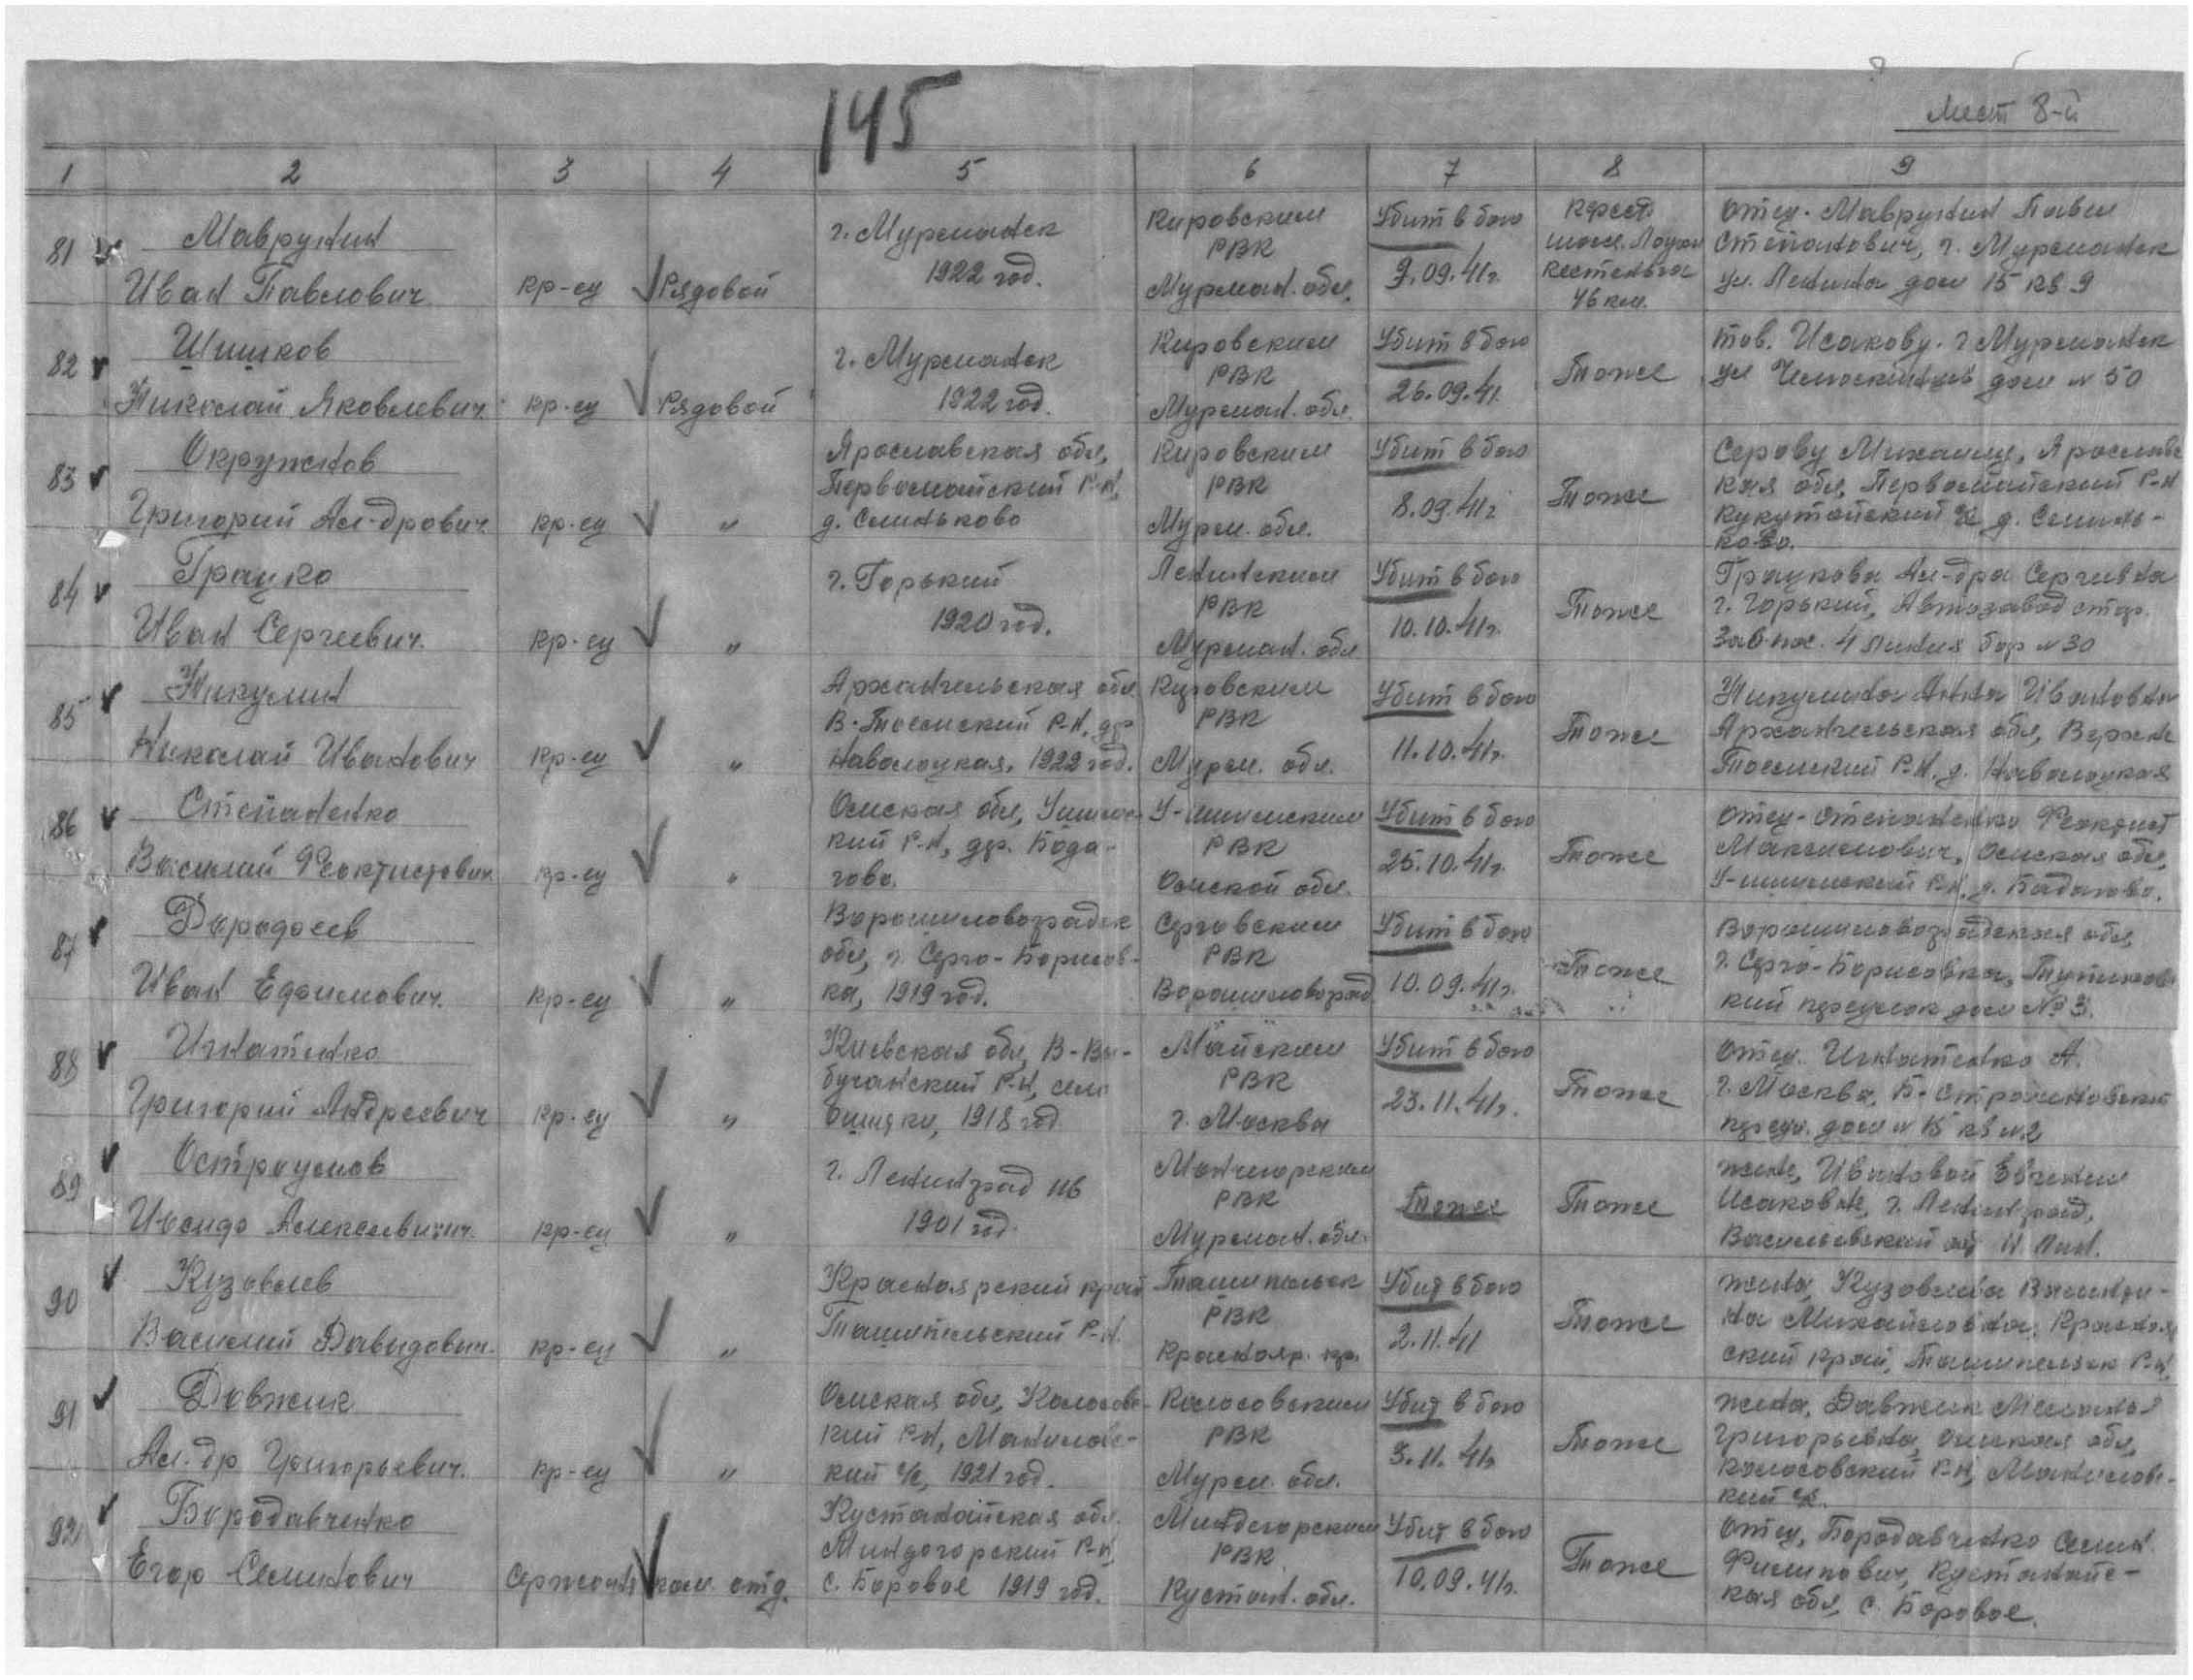 145
Лист 8-й
1 2 3 4 5 6 7 8 9
81 Маврухин
Иван Павлович кр-ец Рядовой
г. Мурманск
1922 год.
Кировским
РВК
Мурман. обл.
Убит в бою
9.09.41г.
Лоухи
Кестеньга
46 км.
Отец. Маврухин Павел
Степанович, г. Мурманск
ул. Ленина дом 15 кв 9
82 Шишков
Николай Яковлевич кр-ец Рядовой
г. Мурманск
1922 год.
Кировским
РВК
Мурман. обл.
Убит в бою
26.09.41
Тоже
тов. Исакову. г Мурманск
ул Челюскинцев дом № 50
83 Окружнов
Григорий Ал-дрович кр-ец "
Ярославская обл,
Первомайский Р-Н,
д. Семиньково
Кировским
РВК
Мурм. обл.
Убит в бою
8.09.41г
Тоже
Серову Михаилу, Ярославс
кая обл, Первомайский Р-Н
с/с д. Семинь-
ково.
84 Грацко
Иван Сергеевич. кр-ец "
г. Горький
1920 год.
Ленинским
РВК
Мурман. обл
Убит в бою
10.10.41г.
Тоже
Грацкова Ал-дра Сергеевна
г. Горький, Автозавод
4 линия бар № 30
85 Никулин
Николай Иванович кр-ец "
Архангельская обл.
В-Тоемский Р-Н, др
Наволоцкая, 1922 год.
Кировским
РВК
Мурм. обл.
Убит в бою
11.10.41г.
Тоже
Никулина Анна Ивановна
Архангельская обл, Верхне
Тоемский Р-Н, д. Наволоцкая
86 Степаненко
Василий Феоктистович кр-ец "
Омская обл,
кий Р-Н, др. Бода-
гово.
У-ишимским
РВК
Омской обл.
Убит в бою
25.10.41г.
Тоже
Отец-Степаненко Феоктист
Максимович, Омская обл,
У-ишимский Р-Н, д. Бадагово.
87 Дородоев
Иван Ефимович. кр-ец "
Ворошиловоградск
обл, г. Серго-Борисов-
ка, 1919 год.
Серговским
РВК
Ворошиловоград
Убит в бою
10.09.41г.
Тоже
Ворошиловоградская обл,
г. Серго-Борисовка,
кий переулок дом №3.
88 Игнатенко
Григорий Андреевич кр-ец "
Киевская обл,
Р-Н, село
1918 год
Майским
РВК
г. Москва
Убит в бою
23.11.41г.
Тоже
Отец. Игнатенко А.
г. Москва, Б-Строченовский
переул. дом № 15 кв №2
89 Остроумов
Алексеевич. кр-ец "
г. Ленинград
1901 год.
Мончегорским
РВК
Мурман. обл.
Тоже
Тоже
жене, Ивановой Евгении
Исаковне, г. Ленинград,
Васильевский
90 Кузовлев
Василий Давидович. кр-ец "
Красноярский край
Таштыпский Р-Н.
РВК
Краснояр. кр.
Убит в бою
2.11.41
Тоже
жена, Кузовлева Валенти-
на Михайловна, Краснояр
ский край, Р-Н.
91 Довжик
Ал-др Григорьевич. кр-ец "
Омская обл, Колосовс-
кий Р-Н,
кий с/с, 1921 год.
Колосовским
РВК
Мурм. обл.
Убит в бою
3.11.41г
Тоже
жена, Давжик
Григорьевна, Омская обл,
Колосовский Р-Н,
кий с/с.
92 Бородавченко
Егор Семинович Сержант ком. отд.
Кустанайская обл.
Миндогорский Р-Н
с. Боровое 1919 год.
РВК
Кустан. обл.
Убит в бою
10.09.41г.
Тоже
Отец, Бородавченко Семин
Филипович, Кустанайс-
кая обл, с. Боровое.